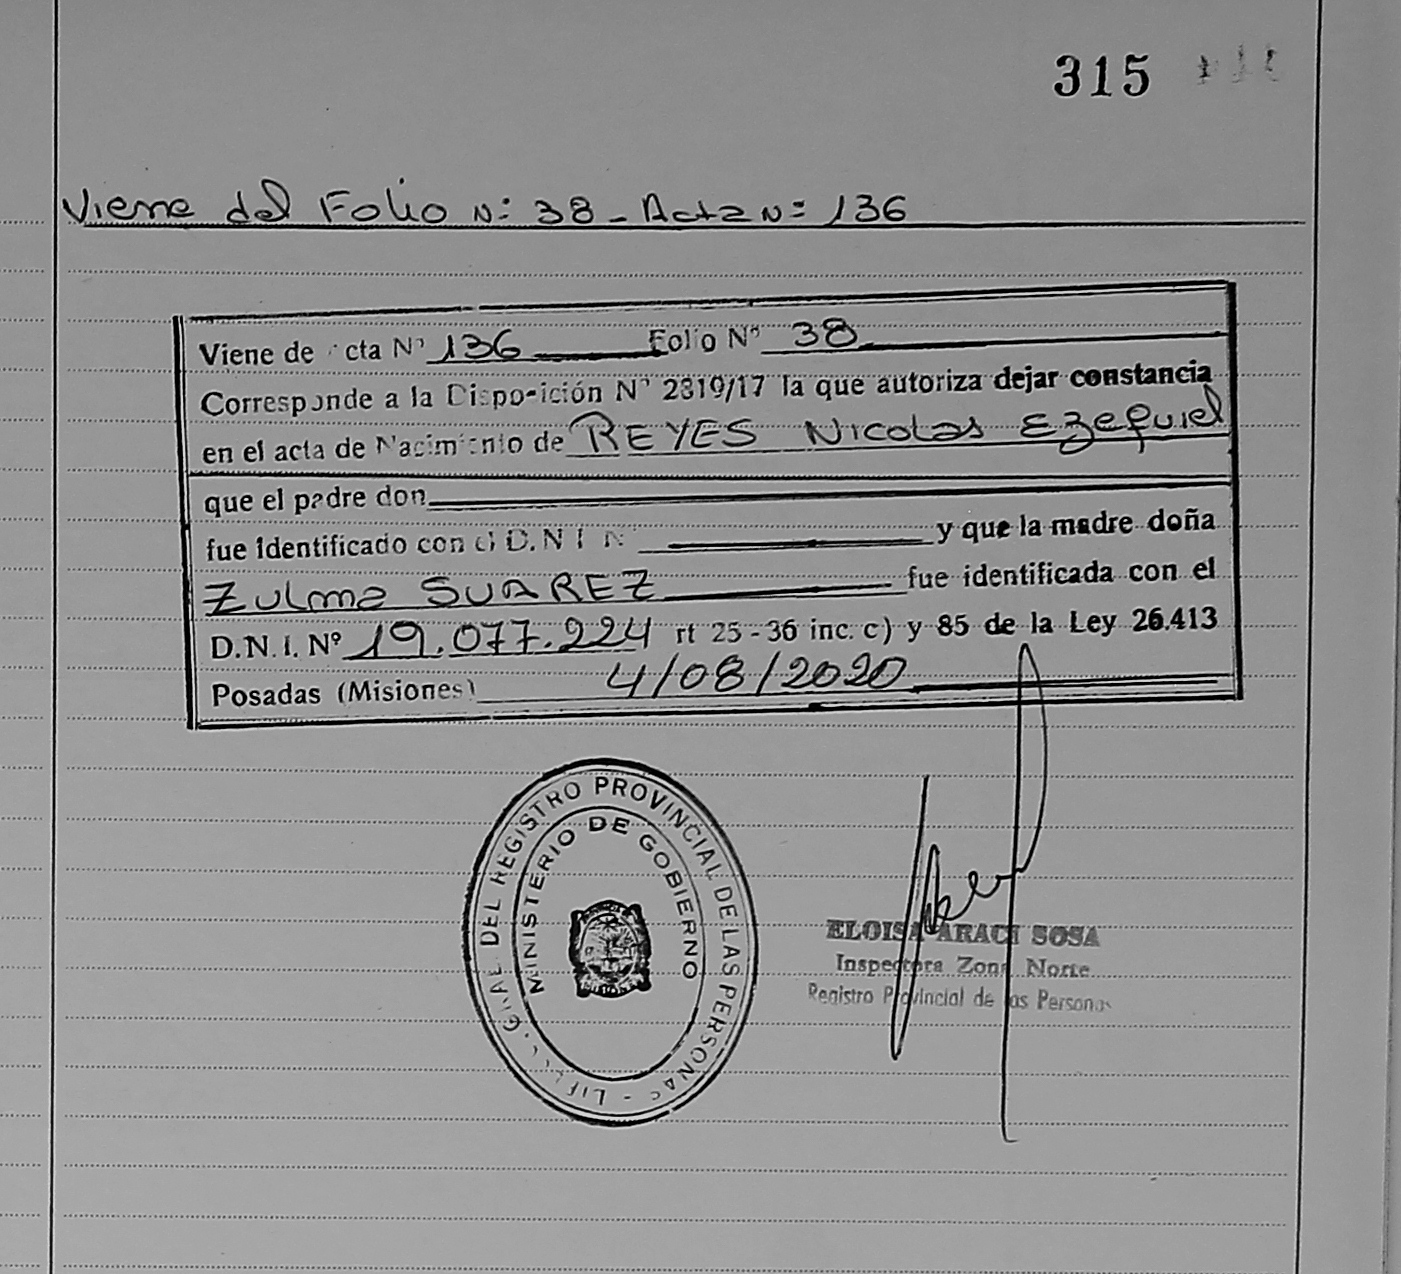 315
Viene del Folio N: 38 - Acta N= 136
Viene de cta Nº 136 Folio Nº 38
Corresponde a la Disposición Nº 2819/17 la que autoriza dejar constancia
en el acta de Nacimiento de REYES Nicolas Ezequiel
que el padre don
fue identificado con el D.N.I. Nº y que la madre doña
Zulma SUAREZ fue identificada con el
D.N.I. Nº 19.077.224 rt 25-36 inc. c) y 85 de la Ley 26.413
Posadas (Misiones) 4/08/2020
GRAL. DEL REGISTRO PROVINCIAL DE LAS PERSONAS
MINISTERIO DE GOBIERNO
ELOISA ARACI SOSA
Inspectora Zona Norte
Registro Provincial de las Personas